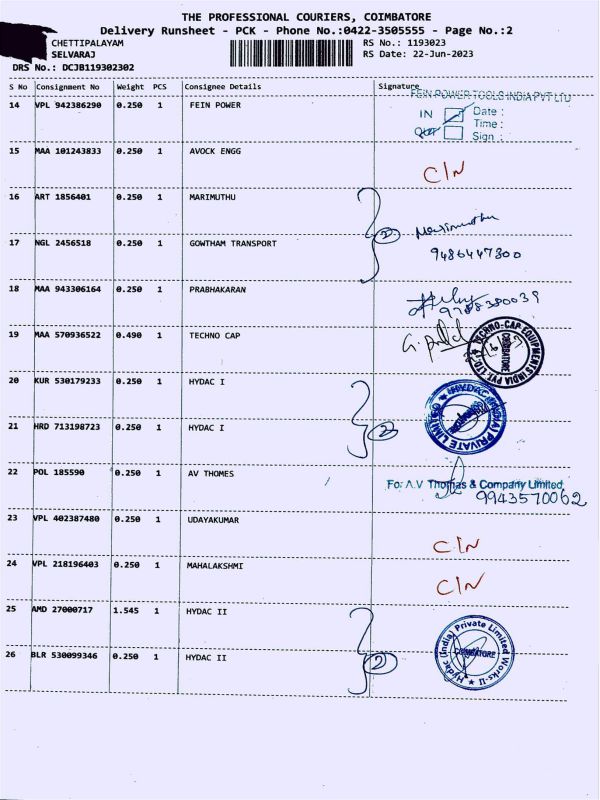 THE PROFESSIONAL COURIERS, COIMBATORE
Delivery Runsheet - PCK - Phone No.:0422-3505555 - Page No.:2
CHETTIPALAYAM RS No.: 1193023
SELVARAJ RS Date: 22-Jun-2023
DRS No.: DCJB119302302
S No Consignment No Weight PCS Consignee Details Signature
FEIN POWER TOOLS INDIA PVT LTU
14 VPL 942386290 0.250 1 FEIN POWER
IN Date :
OUT Time :
Sign :
15 MAA 101243833 0.250 1 AVOCK ENGG
C/N
16 ART 1856401 0.250 1 MARIMUTHU
2 Marimuthu
17 NGL 2456518 0.250 1 GOWTHAM TRANSPORT
9486447300
18 MAA 943306164 0.250 1 PRABHAKARAN
9788380039
19 MAA 570936522 0.490 1 TECHNO CAP
TECHNO-CAP EQUIPMENTS (INDIA) PVT. LTD. COIMBATORE
20 KUR 530179233 0.250 1 HYDAC I
HYDAC (INDIA) PRIVATE LIMITED
21 HRD 713198723 0.250 1 HYDAC I
2
22 POL 185590 0.250 1 AV THOMES
For A.V Thomas & Company Limited,
9943570062
23 VPL 402387480 0.250 1 UDAYAKUMAR
C/N
24 VPL 218196403 0.250 1 MAHALAKSHMI
C/N
25 AMD 27000717 1.545 1 HYDAC II
Hydac (India) Private Limited Works-II COIMBATORE
26 BLR 530099346 0.250 1 HYDAC II
2